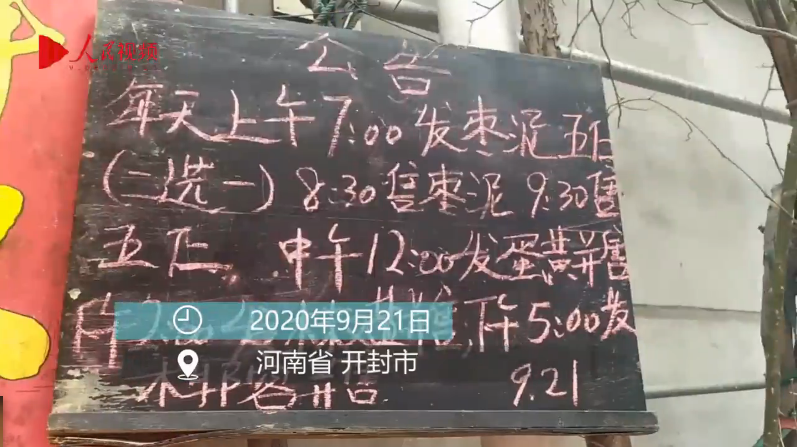 人民视频
公告
每天上午7:00发枣泥五仁
(二选一) 8:30售枣泥 9:30售
五仁, 中午12:00发蛋黄并售
下午5:00发
2020年9月21日
河南省 开封市
并售 9.21